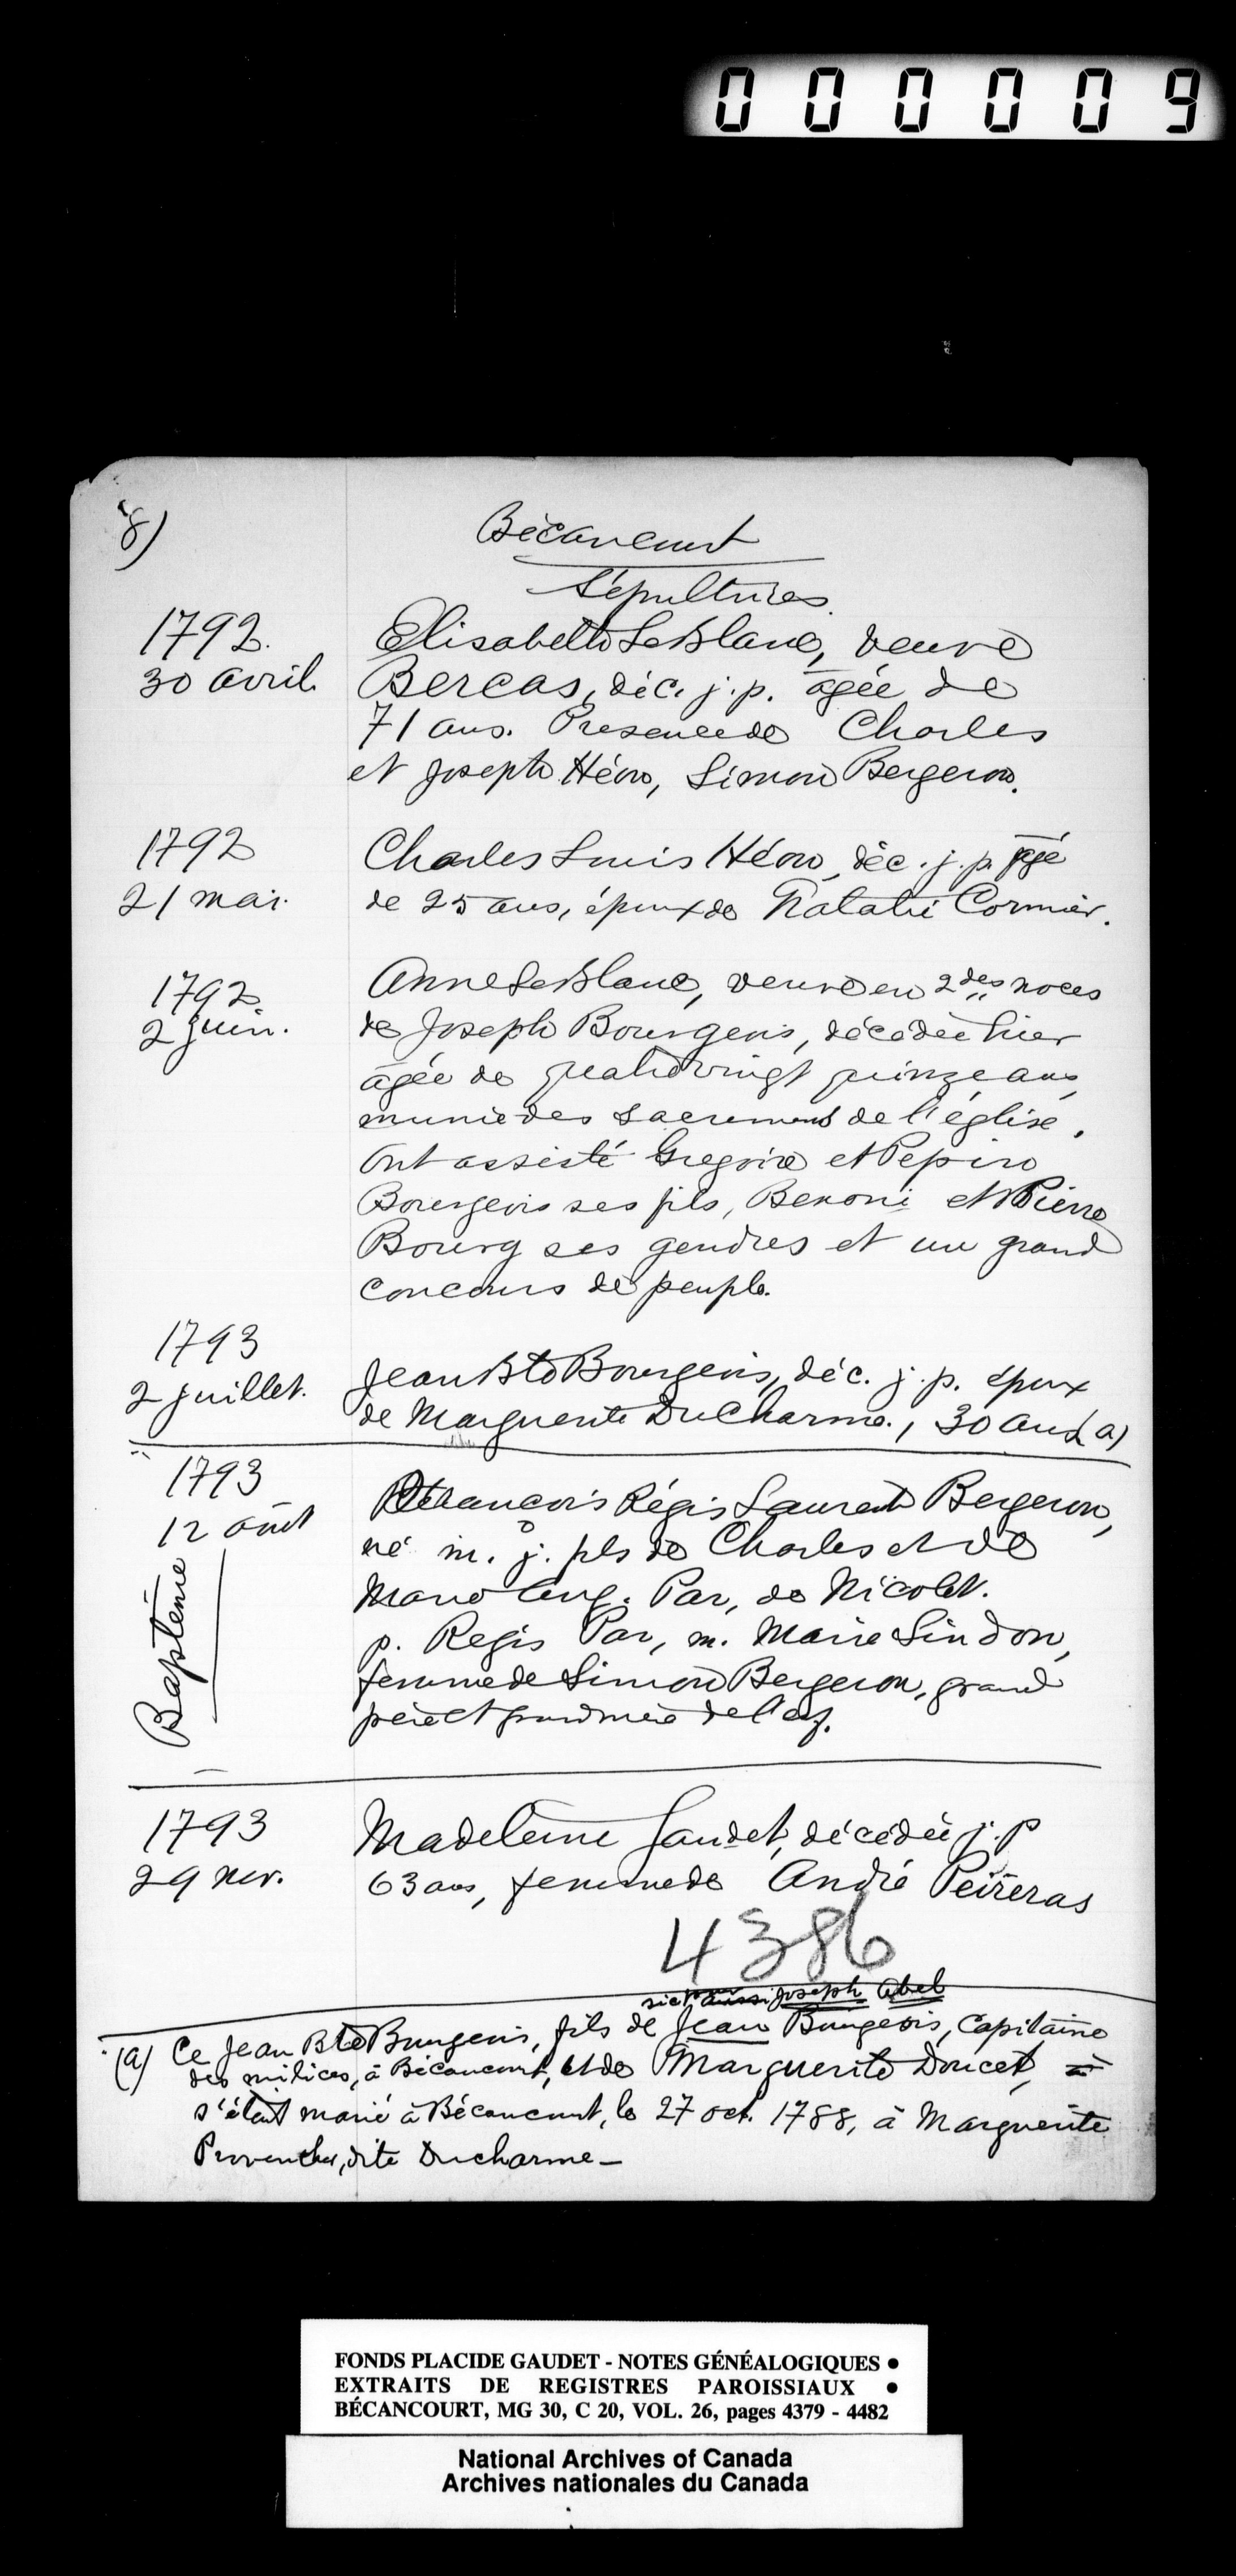 000009
8)
Bécancourt
Sépultures
1792.
30 avril.
Elisabeth LeBlanc, veuve
Bercas, déc. j.p. agée de
71 ans. Presence de Charles
et Joseph Héon, Simon Bergeron.
1792
21 mai.
Charles Louis Héon, déc. j.p. agé
de 25 ans, époux de Natalie Cormier.
1792.
2 juin.
Anne LeBlanc, veuve en 2des noces
de Joseph Bourgeois, décédée hier
agée de quatrevingt quinze ans
munie des sacrements de l'église.
Ont assisté Gregoire et Pepin
Bourgeois ses fils, Benoni et Pierre
Bourg ses gendres et un grand
concours de peuple.
1793
2 juillet.
Jean Bte Bourgeois, déc. j.p. époux
de Marguerite DuCharme., 30 ans (a)
1793
12 août
Baptême
François Régis Laurent Bergeron,
né m. j. fils de Charles et de
Marie Ang. Par, de Nicolet.
p. Regis Par, m. Marie Lindon,
femme de Simon Bergeron, grand
père et grandmère de l'enf.
1793
29 nov.
Madeleine Gaudet, décédée j.p
63 ans, femme de André Peireras
4386
aussi Joseph Abel
(a) Ce Jean Bte Bourgeois, fils de Jean Bourgeois, Capitaine
des milices, à Bécancourt, et de Marguerite Doucet,
s'était marié à Bécancourt, le 27 oct. 1788, à Marguerite
Provencher, dite Ducharme—
FONDS PLACIDE GAUDET - NOTES GÉNÉALOGIQUES •
EXTRAITS DE REGISTRES PAROISSIAUX •
BÉCANCOURT, MG 30, C 20, VOL. 26, pages 4379 - 4482
National Archives of Canada
Archives nationales du Canada